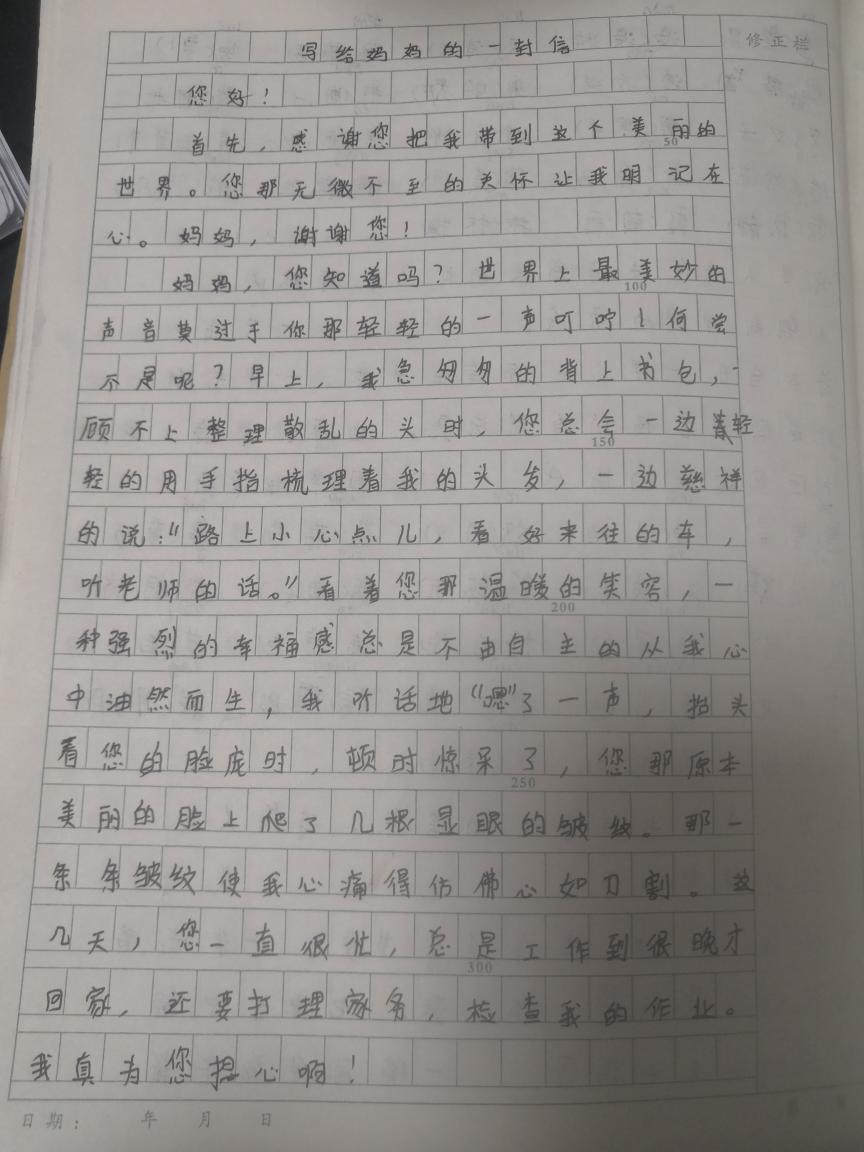 写给妈妈的一封信
修正栏
您好！
首先，感谢您把我带到这个美丽的
50
世界。您那无微不至的关怀让我明记在
心。妈妈，谢谢您！
妈妈，您知道吗？世界上最美妙的
100
声音莫过于你那轻轻的一声叮咛！何尝
不是呢？早上，我急匆匆的背上书包，
顾不上整理散乱的头时，您总会一边轻
150
轻的用手指梳理着我的头发，一边慈祥
的说：“路上小心点儿，看好来往的车，
听老师的话。”看着您那温暖的笑容，一
200
种强烈的幸福感总是不由自主的从我心
中油然而生，我听话地“嗯”了一声，抬头
看您的脸庞时，顿时惊呆了，您那原本
250
美丽的脸上爬了几根显眼的皱纹。那一
条条皱纹使我心痛得仿佛心如刀割。这
几天，您一直很忙，总是工作到很晚才
300
回家，还要打理家务，检查我的作业。
我真为您担心啊！
日期： 年 月 日